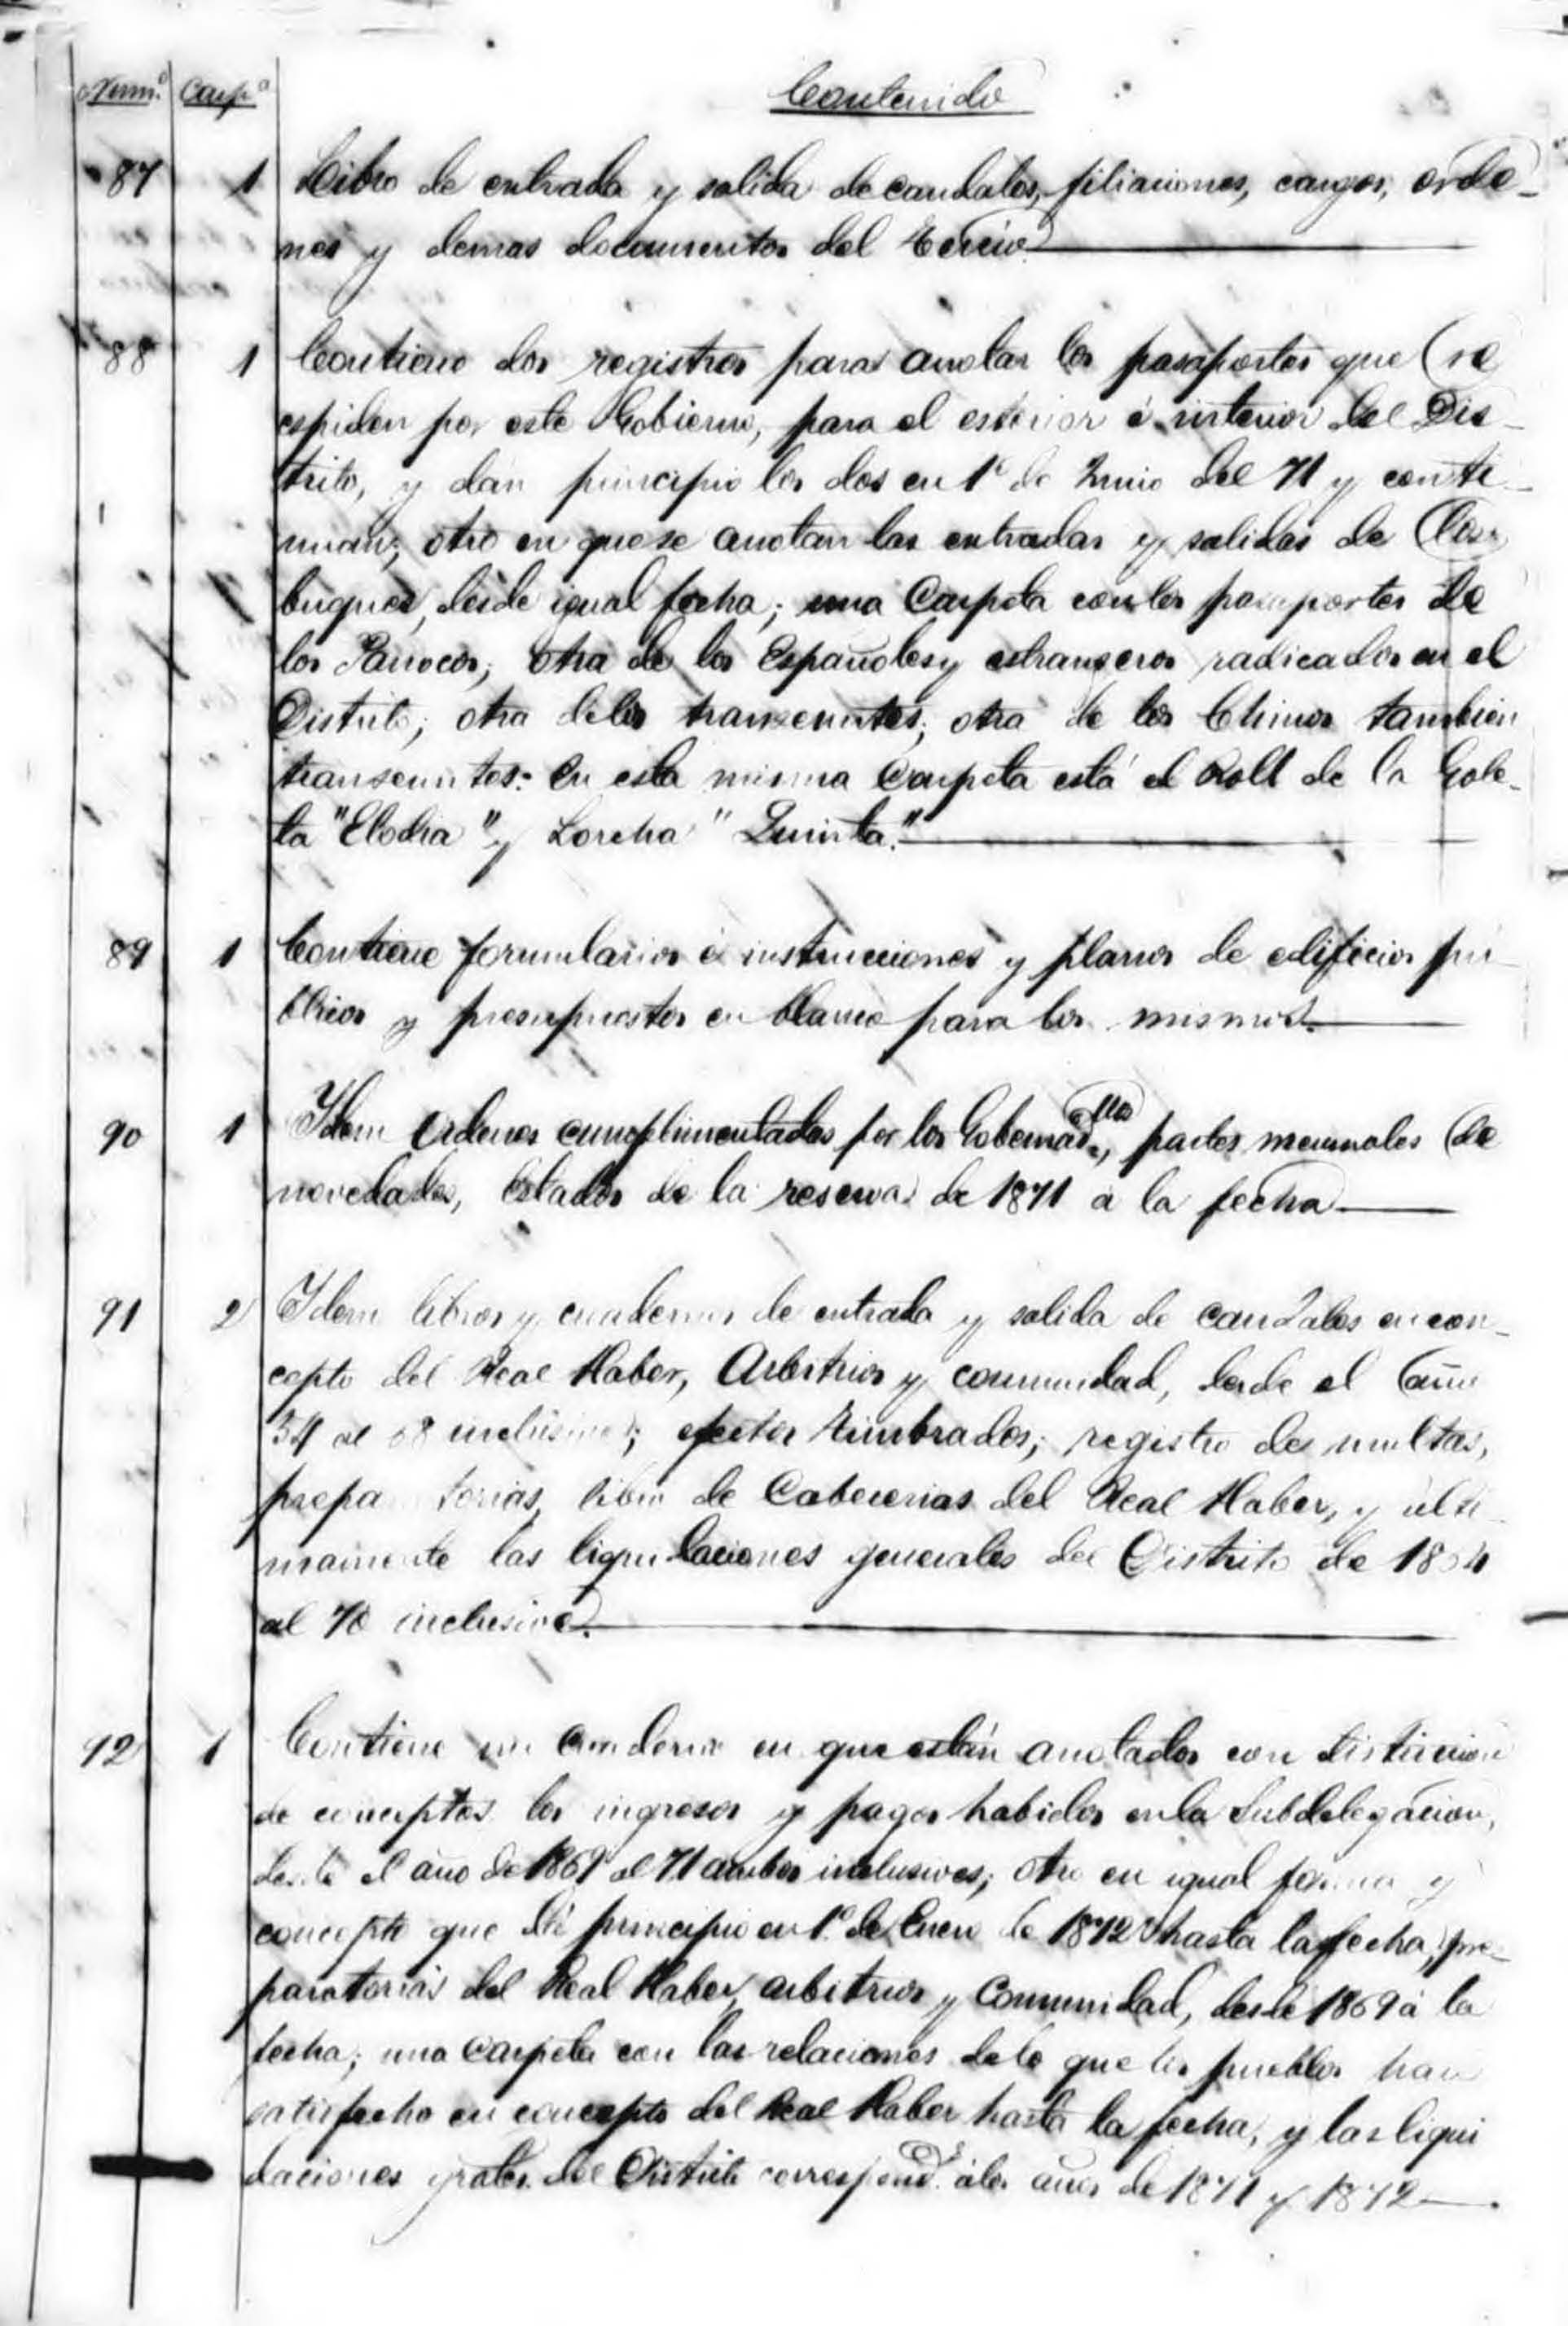 Num.º Carp.ª Contenido
87 1 Libro de entrada y salida de caudales, filiaciones, cargos, orde-
nes y demas documentos del Tercio
88 1 Contiene dos registros para anotar los pasaportes que se
espiden por este Gobierno, para el esterior é interior del Dis-
trito, y dán principio los dos en 1º de Junio del 71 y conti-
nuan; otro en que se anotan las entradas y salidas de los
buques, desde igual fecha; una Carpeta con los pasaportes de
los Parrocos; otra de los Españoles y estrangeros radicados en el
Distrito; otra de los transeuntes; otra de los Chinos tambien
transeuntes: En esta misma Carpeta está el Roll de la Gole-
ta "Elodia" y Lorcha "Quinta."
89 1 Contiene formularios é instrucciones y planos de edificios pú-
blicos y presupuestos en blanco para los mismos.
90 1 Idem Ordenes cumplimentadas por los Gobernad.llos, partes mensuales de
novedades, Estados de la reserva de 1871 á la fecha
91 2 Idem libros y cuadernos de entrada y salida de Caudales en con-
cepto del Real Haber, Arbitrios y comunidad, desde el año
54 al 68 inclusives; efectos timbrados; registro de multas,
preparatorias, libro de Cabecerias del Real Haber, y ulti-
mamente las liquidaciones generales del Distrito de 1854
al 70 inclusive.
92 1 Contiene un Cuaderno en que están anotados con distincion
de conceptos los ingresos y pagos habidos en la Subdelegacion,
desde el año de 1869 al 71 ambos inclusives; otro en igual forma y
concepto que dá principio en 1º de Enero de 1872 hasta la fecha, pre-
paratorias del Real Haber, arbitrios y Comunidad, desde 1869 á la
fecha; una Carpeta con las relaciones de lo que los pueblos han
satisfecho en concepto del Real Haber hasta la fecha, y las liqui
daciones grales. del Distrito correspond.es á los años de 1871 y 1872